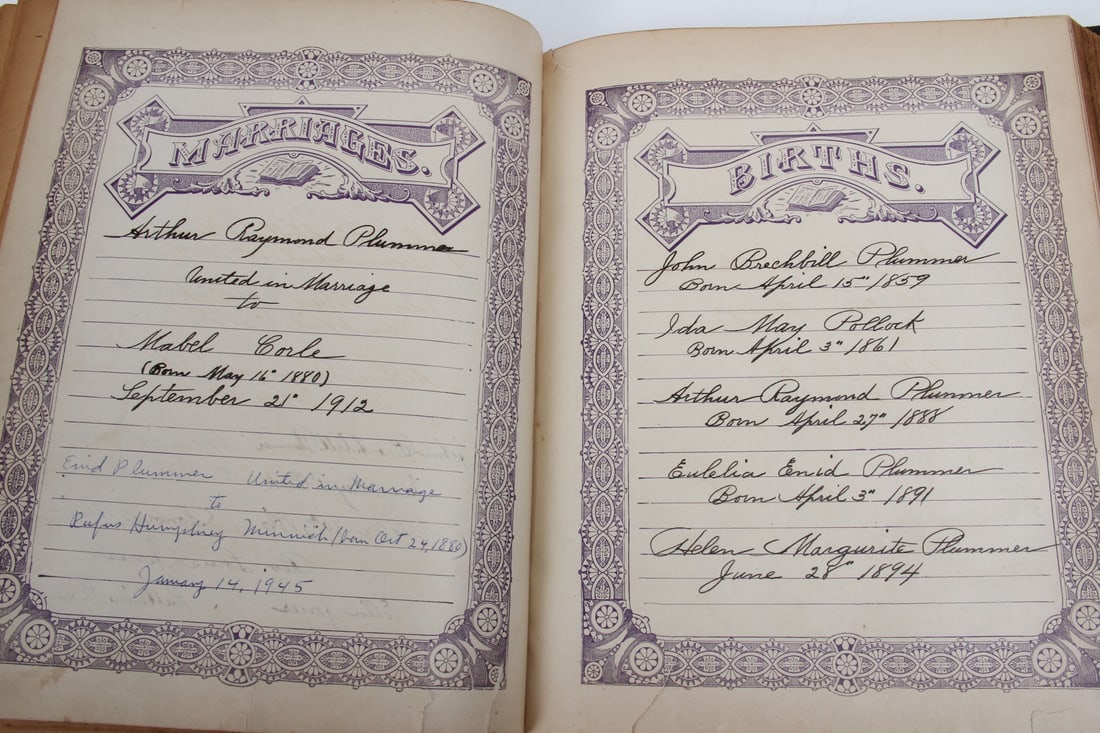 MARRIAGES.
Arthur Raymond Plummer
United in Marriage
to
Mabel Corle
(Born May 16" 1880)
September 21" 1912
Enid Plummer United in Marriage
to
Rufus Humphrey Minnich (born Oct 24, 1880)
January 14, 1945
BIRTHS.
John Brechbill Plummer
Born April 15" 1859
Ida May Pollock
Born April 3" 1861
Arthur Raymond Plummer
Born April 27" 1888
Eulelia Enid Plummer
Born April 3" 1891
Helen Margurite Plummer
June 28" 1894